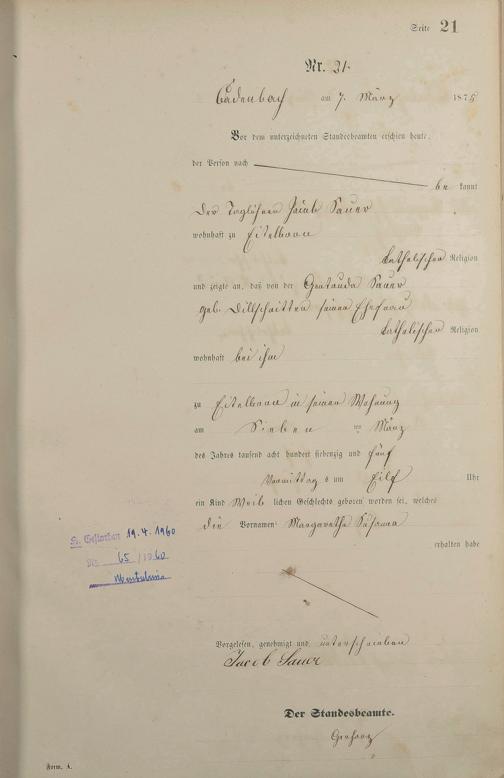 Seite 21
Nr. 21.
Cadenbach am 7. März 1875
Vor dem unterzeichneten Standesbeamten erschien heute,
der Person nach
be kannt
der Taglöhner Jacob Sauer
wohnhaft zu Eitelborn
katholischer Religion
und zeigte an, daß von der Gertrauda Sauer
geb. Dillschnitter seiner Ehefrau
katholischer Religion
wohnhaft bei ihm
zu Eitelborn in seiner Wohnung
am Sieben ten März
des Jahres tausend acht hundert siebenzig und fünf
Vormittag s um Eilf Uhr
ein Kind Weib lichen Geschlechts geboren worden sei, welches
die Vornamen Margaretha Susanna
erhalten habe
Gestorben 19.4.1960
Nr. 65 / 1960
Montabaur
Vorgelesen, genehmigt und unterschrieben
Jacob Sauer
Der Standesbeamte.
Form. A.